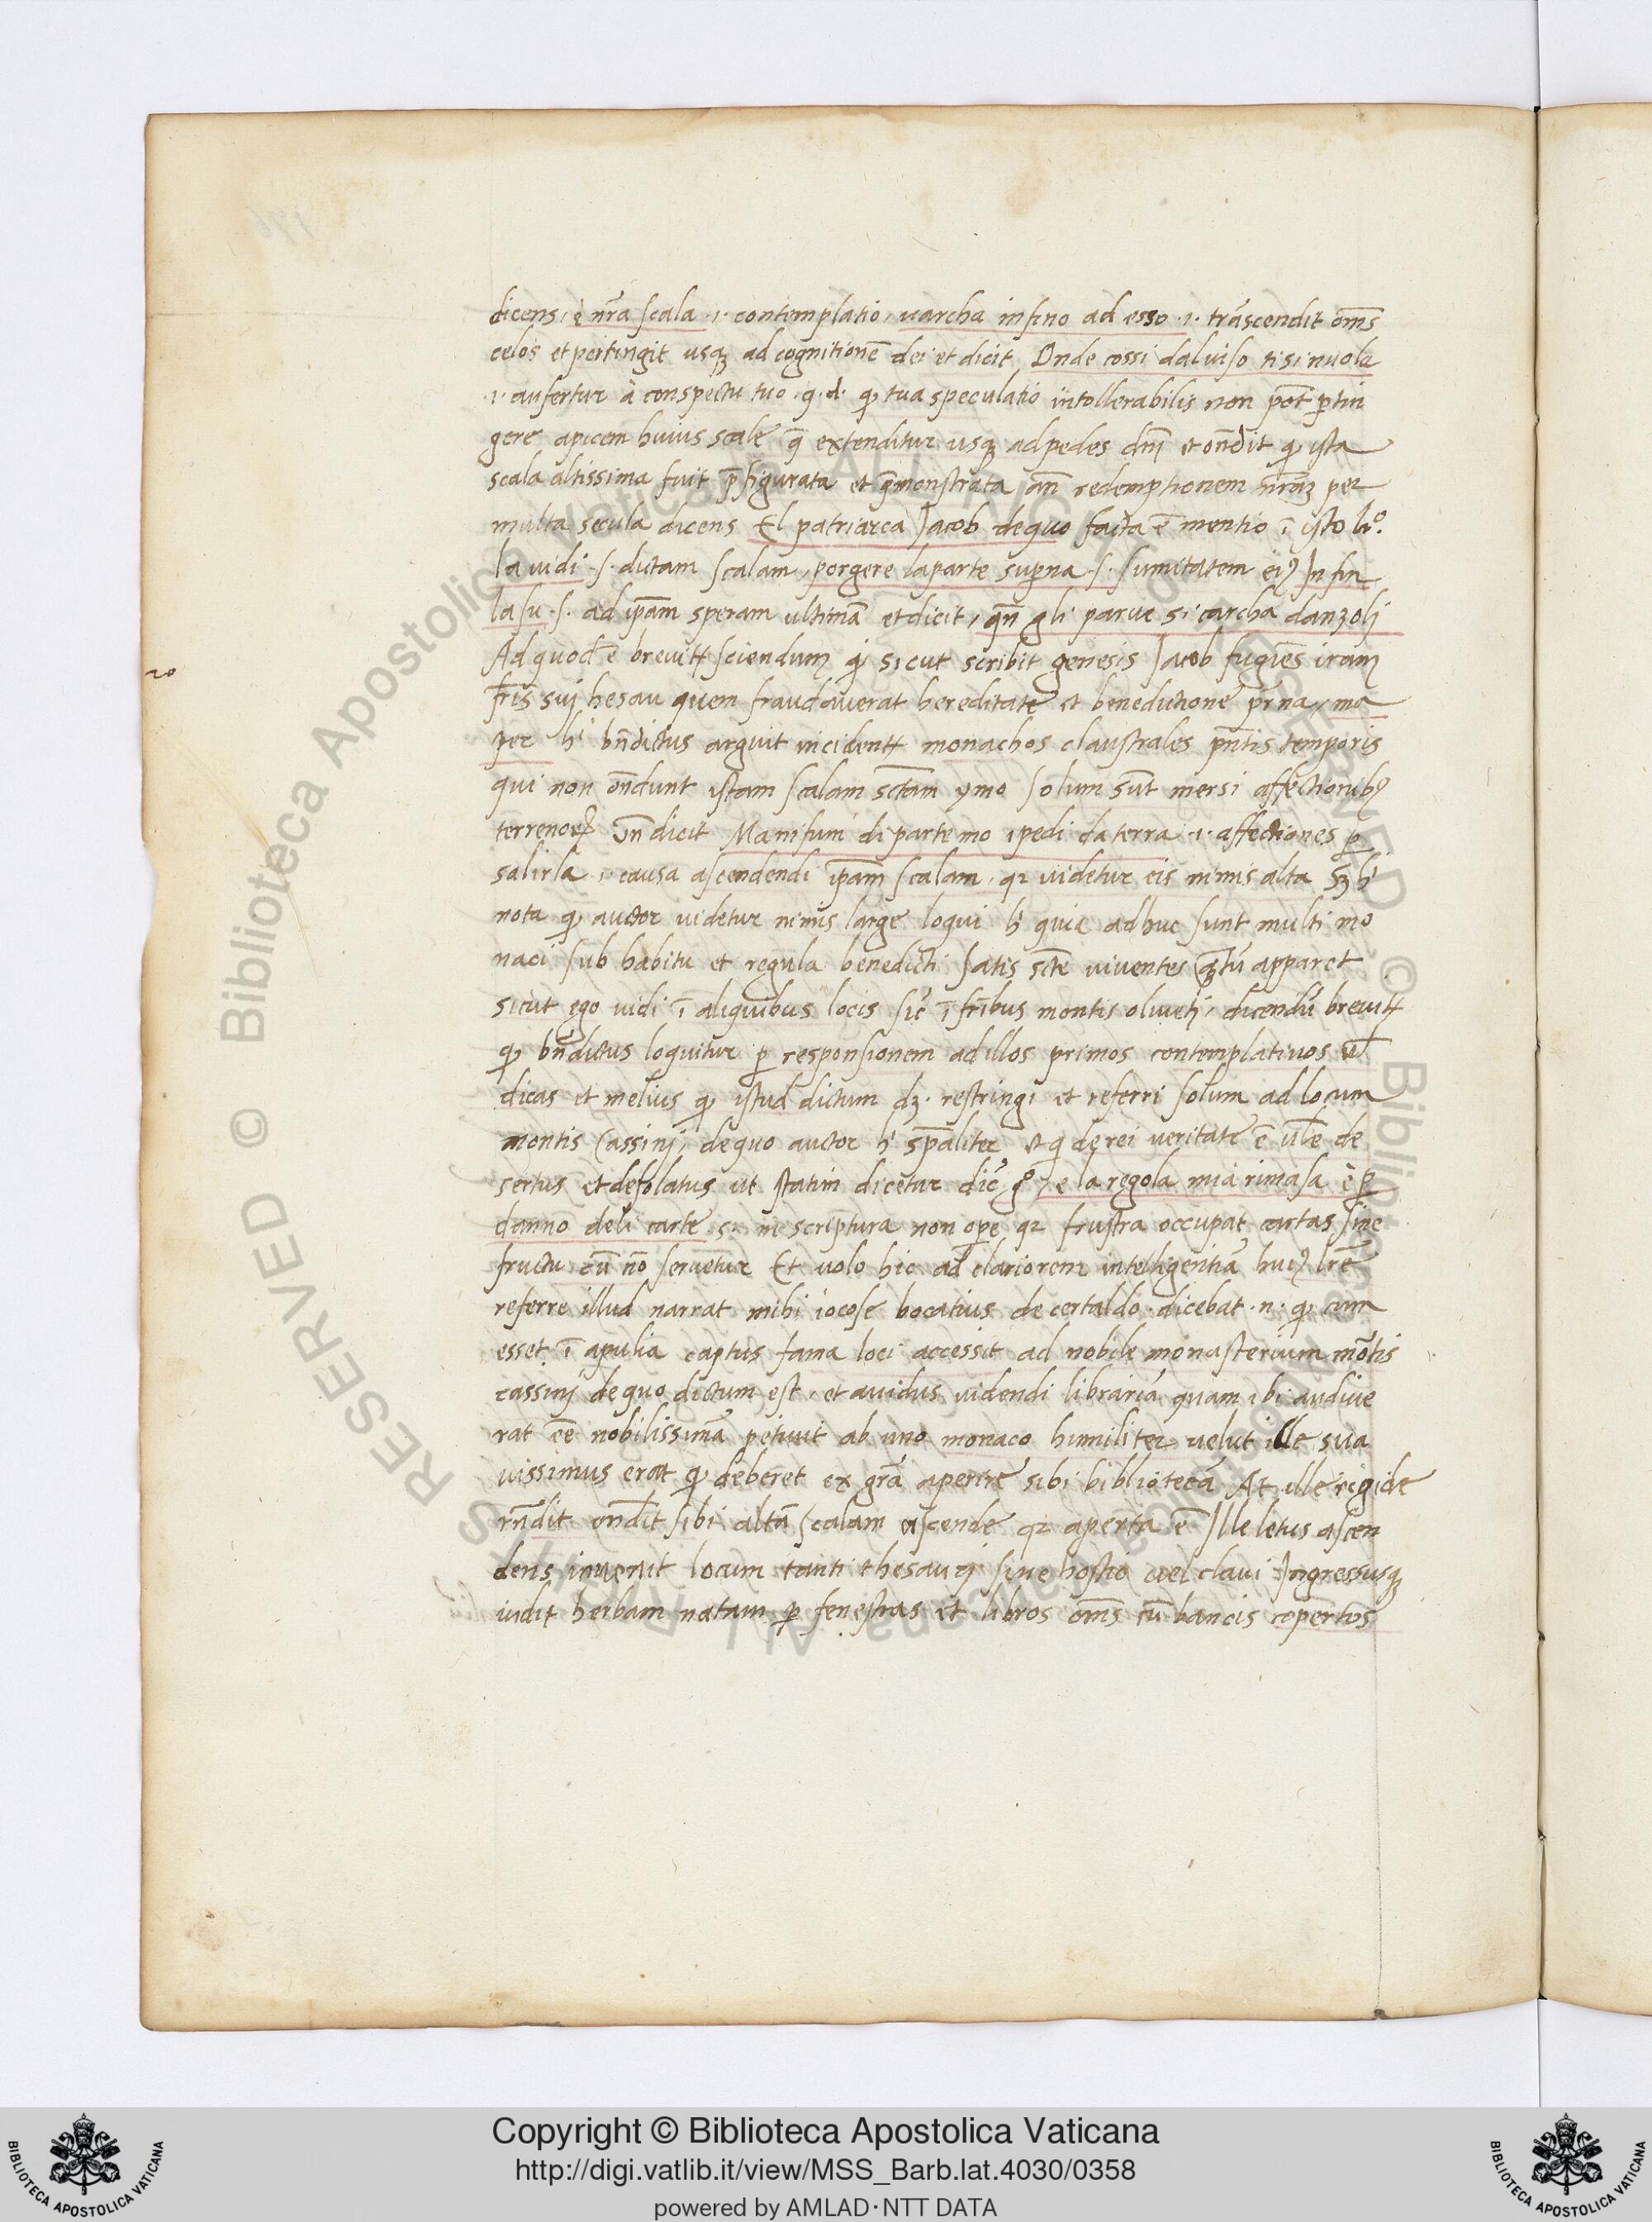 dicens, è nr̃a scala .i. contemplatio, varcha infino ad esso .i. trãscendit oms̃
celos et pertingit usqꝫ ad cognitionẽ dei et dicit, Onde cossi dal viso ti si nvola
.i. aufertur à conspectu tuo .q.d. qꝫ tua speculatio intollerabilis non põt ꝑtin
gere apicem huius scale q̃ extenditur usqꝫ ad pedes dñi et oñdit qꝫ ista
scala altissima fuit p̃figurata et p̃monstrata añ redemptionem nr̃aꝫ per
multa secula dicens El patriarca Jacob de quo facta ẽ mentio ĩ isto liᵒ.
la vidi .s. dictam scalam, porgere la parte suꝑna .s. sumitatem eiꝰ In fin
la su .s. ad ip̃am speram ultimã et dicit, qñ gli parve si carcha danzolj
Ad quod ẽ brevitꝫ sciendum qꝫ sicut scribit genesis Jacob fugiẽs iram
fr̃is suj hesau quem fraudaverat hereditate et benedictione pr̃na, ma
per hⁱ bñdictus arguit incidentꝫ monachos claustrales pñtis temporis
qui non oñdunt istam scalam sctam ymo solum sũt mersi affectionibꝰ
terrenoꝝ Uñ dicit Ma nisun' di parte mo i pedi da terra .i. affectiones ꝑ
salirla .i. causa ascendendi ip̃am scalam, qꝛ videtur eis nimis alta Sꝫ hⁱ
nota qꝫ auctor videtur nimis large loqui hⁱ quia adhuc sunt multi mo
naci sub habitu et regula benedicti satis scte viventes q̃tũ apparet
sicut ego vidi ĩ aliquibus locis sic̃ ĩ fr̃ibus montis olivetj, dicendũ brevitꝫ
qꝫ bñdictus loquitur ꝑ responsionem ad illos primos contemplativos ul̃
dicas et melius qꝫ istud dictum dꝫ. restringi et referri solum ad locum
montis Cassinj, de quo auctor hⁱ sp̃aliter et qꝫ de rei veritate ẽ ul̃e de
sertus et desolatus ut statim dicetur dic̃ gᵒ, e la regola mia rimasa è ꝑ
danno deli carte .s. in scriptura non oꝑe qꝛ frustra occupat cartas sine
fructu cũ nõ servetur Et volo hic ad clariorem intelligentiã huiꝰ lr̃e
referre illud narrat mihi iocose bocatius de certaldo. dicebat .n. qꝫ cum
esset ĩ apulia captus fama loci accessit ad nobile monasterium mõtis
cassinj de quo dictum est, et avidus videndi librariã quam ibi audive
rat eẽ nobilissimã petivit ab uno monaco humiliter velut ille sua
vissimus erat qꝫ deberet ex gr̃a aperire sibi bibliotecã At ille rigide
rñdit oñdit sibi altã scalam ascende qꝛ aperta ẽ Ille letus ascen
dens invenit locum tanti thesaurj sine hostio vel clavi Ingressusqꝫ
vidit herbam natam ꝑ fenestras et libros oms̃ cũ bancis copertos
20
Copyright © Biblioteca Apostolica Vaticana
http://digi.vatlib.it/view/MSS_Barb.lat.4030/0358
powered by AMLAD·NTT DATA
BIBLIOTECA APOSTOLICA VATICANA
BIBLIOTECA APOSTOLICA VATICANA